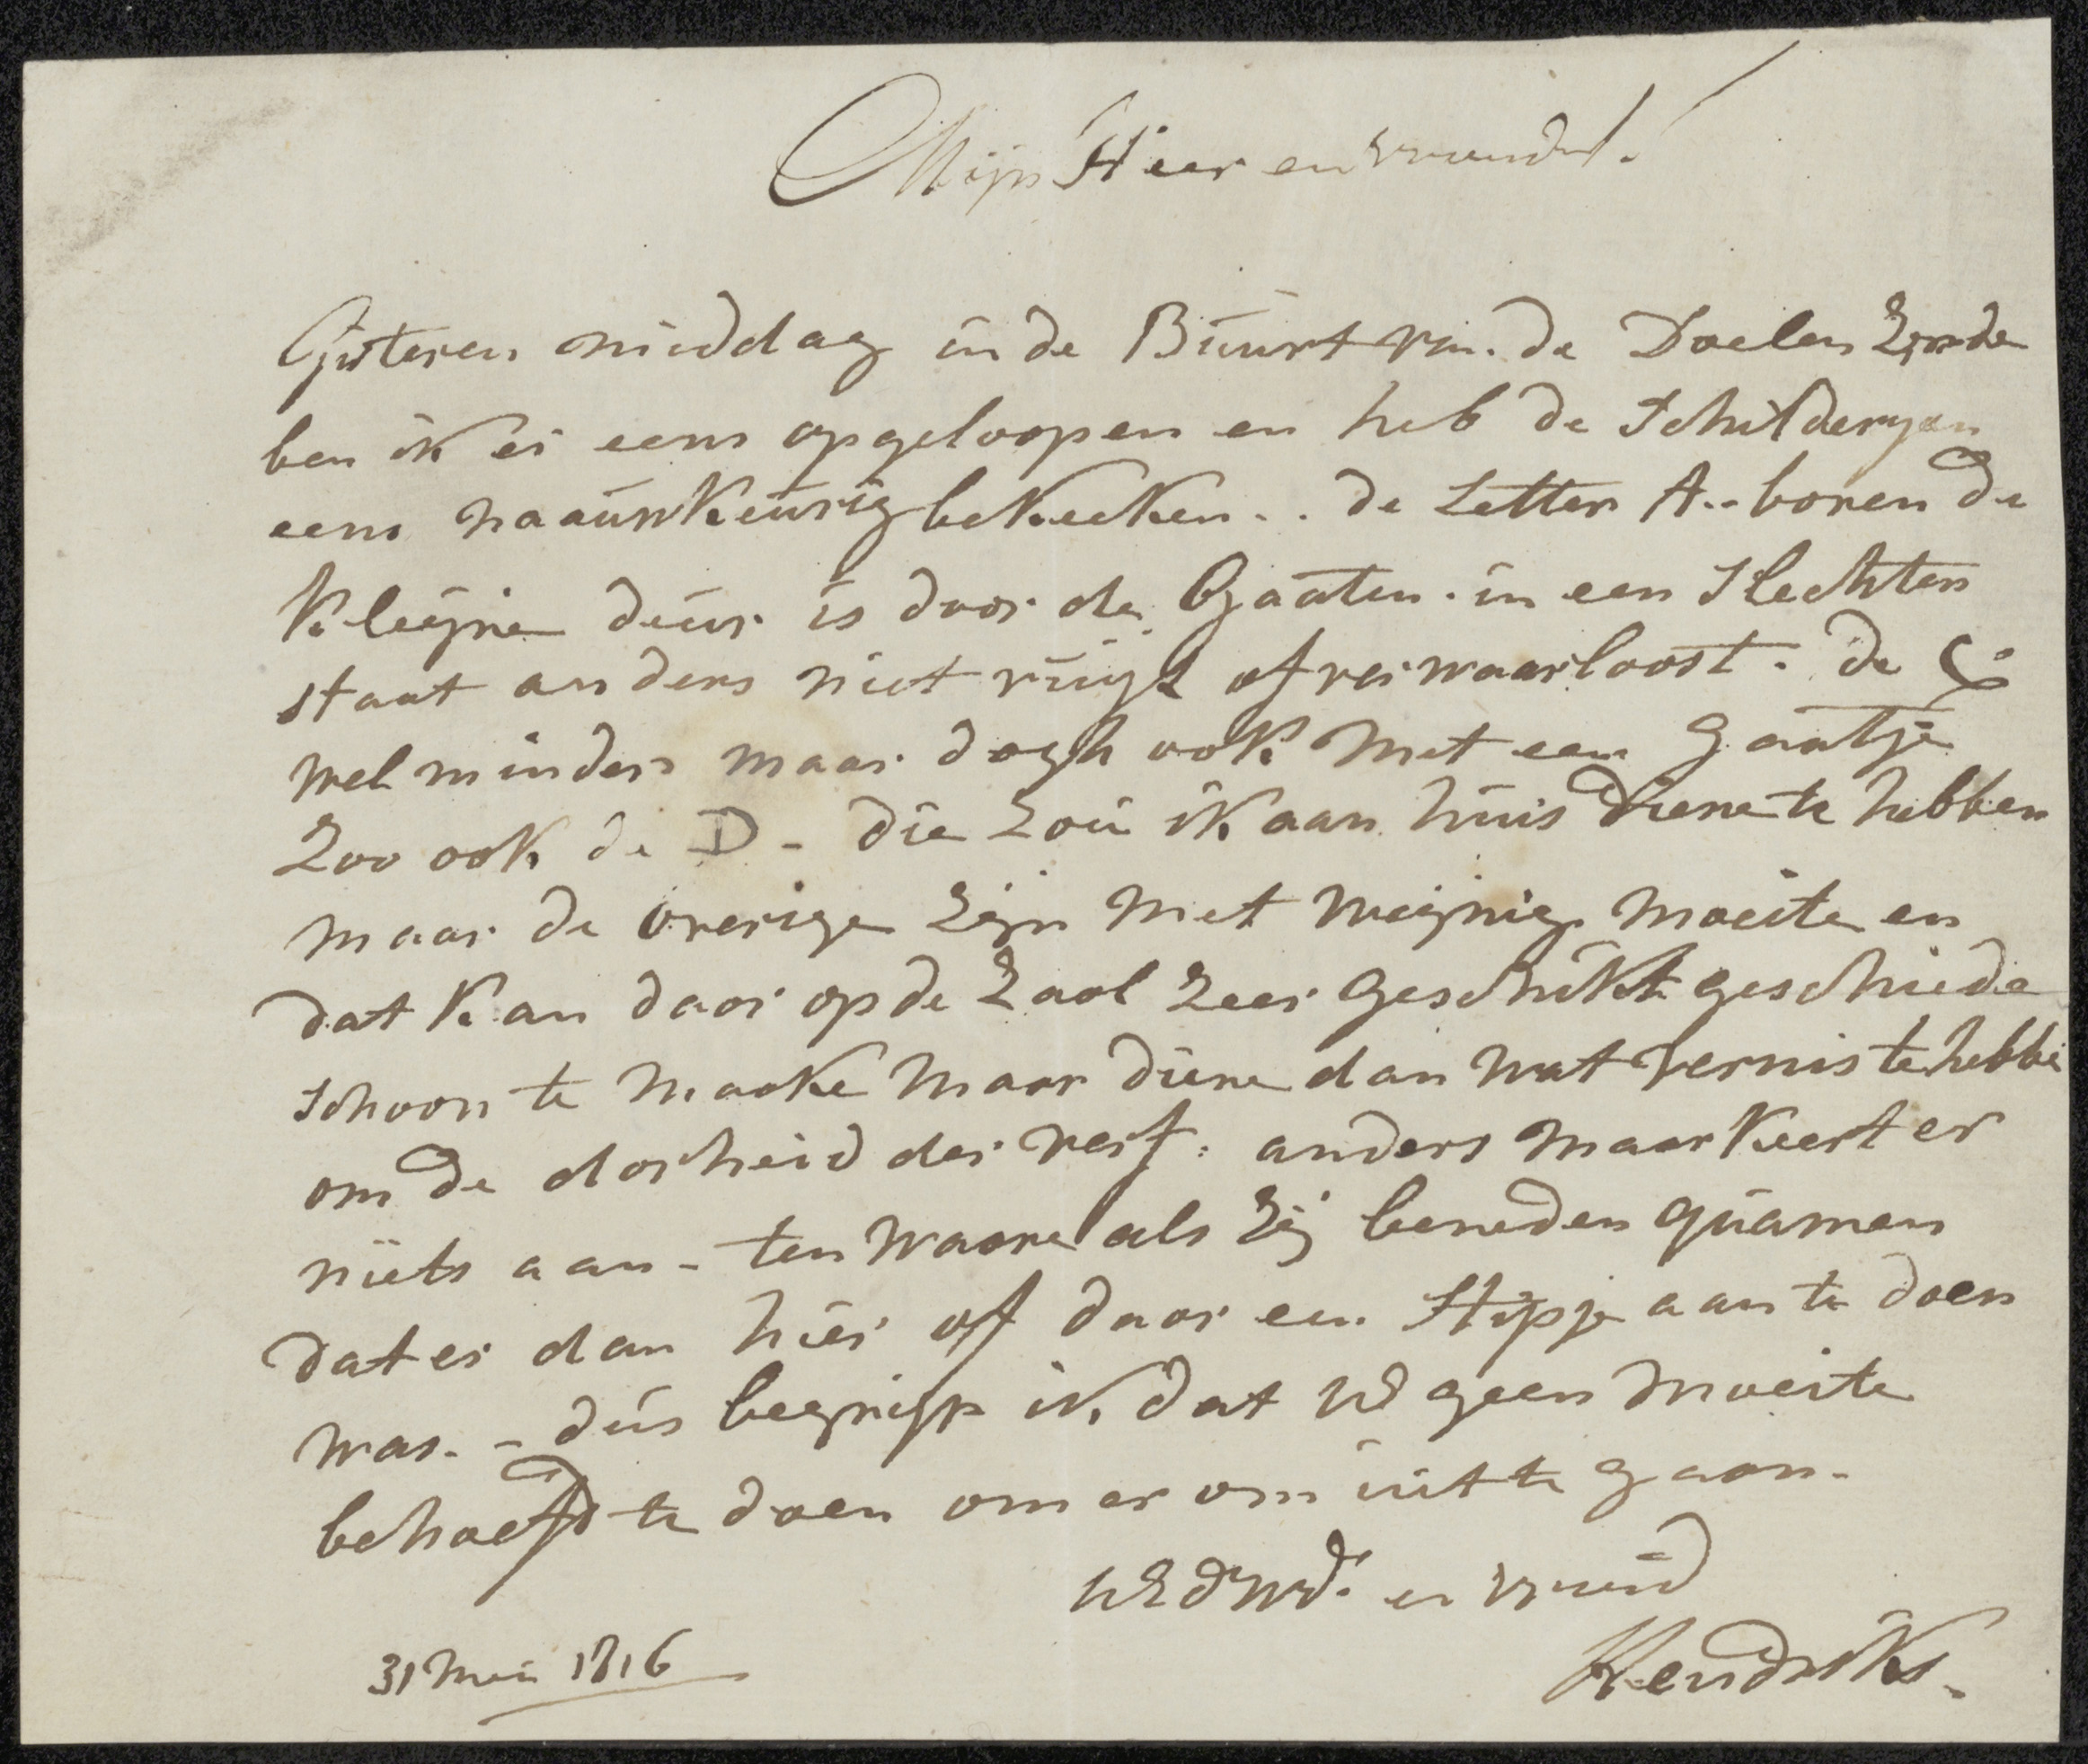 Mijn Heer en vrund!
Gisteren middag in de Buurt van de Doelen Zynde
ben ik er eens opgeloopen en heb de Schilderyen
eens naauwkeurig bekeeken.. de Letter A.. boven de
kleyne deur is door de Gaaten in een slechten
staat anders niet vuyl of verwaarloost. de C
wel minder maar dogh ook met een gaatje
Zoo ook de D - die zou ik aan huis diene te hebben
maar de overige zijn met weijnig moeite en
dat kan daar op de Zaal zeer geschikt geschiede
schoon te maake maar diene dan wat vernis te hebbe
om de dorheid der verf. anders maar keert er
niets aan - ten waare als zij beneden quamen
dat er dan hier of daar een Stipje aan te doen
was. - dus begrijp ik dat UE geen moeite
behoefd te doen om er om uit te gaan.
UE dW dr en vrund
Hendriks.
31 Mei 1816